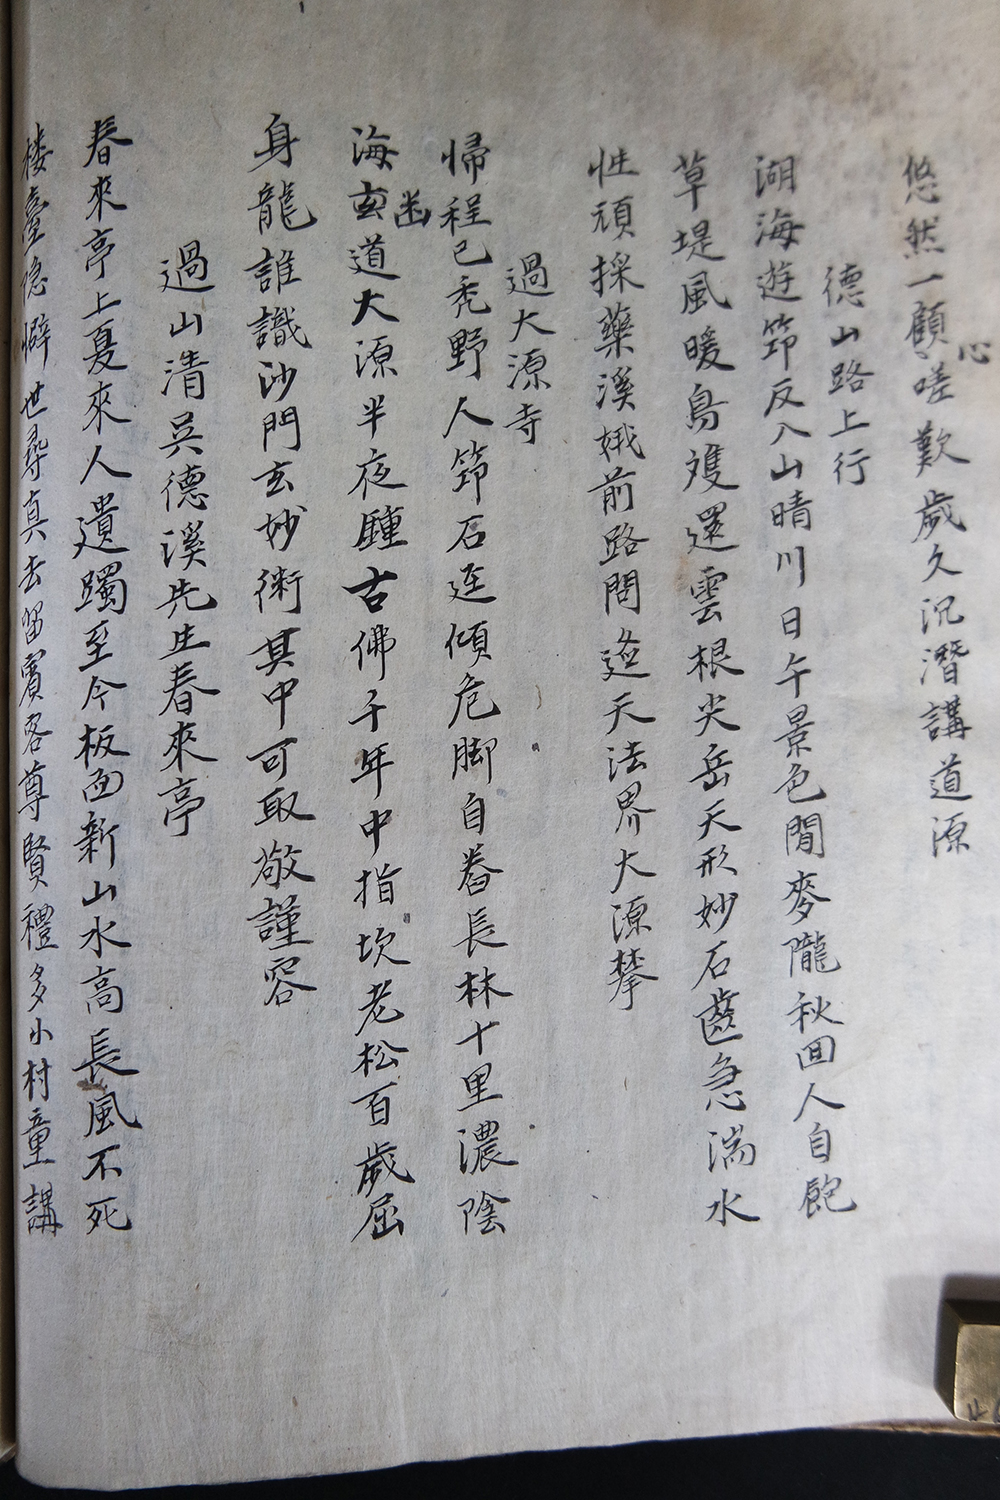 悠然一顧嗟歎歲久沉潛講道源
心
德山路上行
湖海遊筇反入山晴川日午景色閒麥隴秋回人自飽
草堤風暖鳥雙還雲根尖岳天形妙石齒急湍水
性頑採藥溪娥前路問 天法界大源攀
過大源寺
帰程已禿野人筇石逕傾危脚自舂長林十里濃陰
海玄道大源半夜腫古佛千年中指坎老松百歲屈
身龍誰識沙門玄妙術其中可取敬謹容
過山清吳德溪先生春來亭
春來亭上夏來人遺躅至今板面新山水高長風不死
楼臺隐僻世尋真去留賓客尊賢禮多小村童講